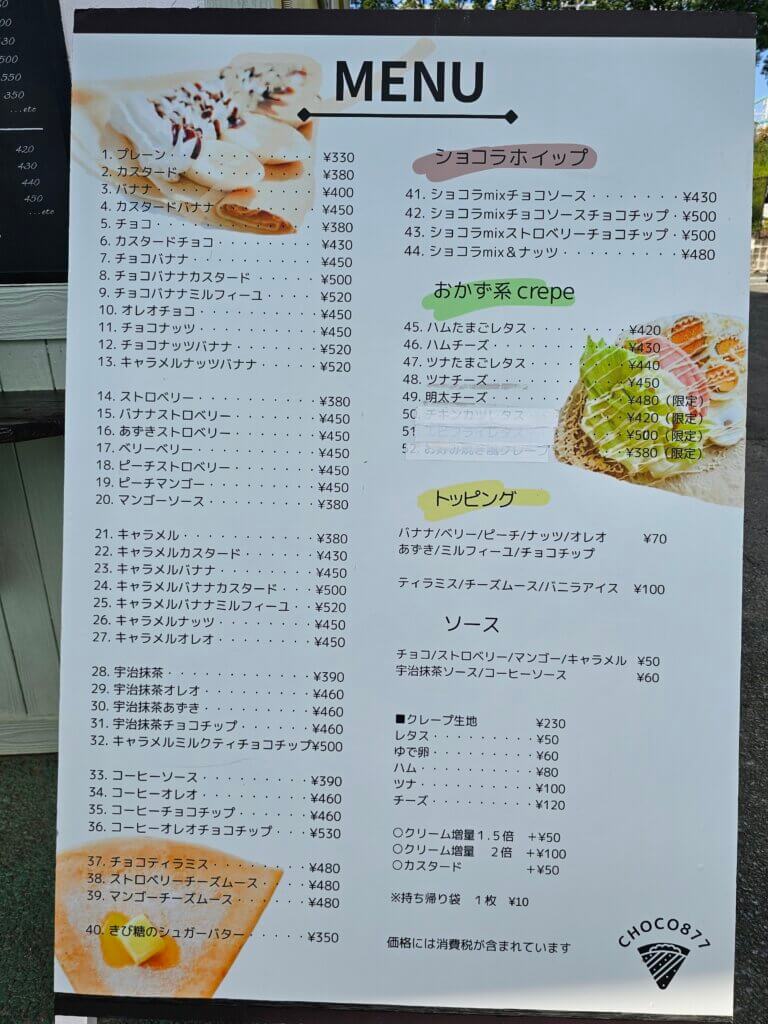 00
380
430
500
550
350
...etc
420
430
440
450
...etc
MENU
1. プレーン・・・・・・・・・・・・¥330
2. カスタード・・・・・・・・・・・¥380
3. バナナ・・・・・・・・・・・・・¥400
4. カスタードバナナ・・・・・・・・¥450
5. チョコ・・・・・・・・・・・・・¥380
6. カスタードチョコ・・・・・・・・¥430
7. チョコバナナ・・・・・・・・・・¥450
8. チョコバナナカスタード・・・・・¥500
9. チョコバナナミルフィーユ・・・・¥520
10. オレオチョコ・・・・・・・・・・¥450
11. チョコナッツ・・・・・・・・・・¥450
12. チョコナッツバナナ・・・・・・・¥520
13. キャラメルナッツバナナ・・・・・¥520
14. ストロベリー・・・・・・・・・・¥380
15. バナナストロベリー・・・・・・・¥450
16. あずきストロベリー・・・・・・・¥450
17. ベリーベリー・・・・・・・・・・¥450
18. ピーチストロベリー・・・・・・・¥450
19. ピーチマンゴー・・・・・・・・・¥450
20. マンゴーソース・・・・・・・・・¥380
21. キャラメル・・・・・・・・・・・¥380
22. キャラメルカスタード・・・・・・¥430
23. キャラメルバナナ・・・・・・・・¥450
24. キャラメルバナナカスタード・・・¥500
25. キャラメルバナナミルフィーユ・・¥520
26. キャラメルナッツ・・・・・・・・¥450
27. キャラメルオレオ・・・・・・・・¥450
28. 宇治抹茶・・・・・・・・・・・・¥390
29. 宇治抹茶オレオ・・・・・・・・・¥460
30. 宇治抹茶あずき・・・・・・・・・¥460
31. 宇治抹茶チョコチップ・・・・・・¥460
32. キャラメルミルクティチョコチップ¥500
33. コーヒーソース・・・・・・・・・¥390
34. コーヒーオレオ・・・・・・・・・¥460
35. コーヒーチョコチップ・・・・・・¥460
36. コーヒーオレオチョコチップ・・・¥530
37. チョコティラミス・・・・・・・・¥480
38. ストロベリーチーズムース・・・・¥480
39. マンゴーチーズムース・・・・・・¥480
40. きび糖のシュガーバター・・・・・¥350
ショコラホイップ
41. ショコラmixチョコソース・・・・・・・・¥430
42. ショコラmixチョコソースチョコチップ・¥500
43. ショコラmixストロベリーチョコチップ・¥500
44. ショコラmix＆ナッツ・・・・・・・・・¥480
おかず系 crepe
45. ハムたまごレタス・・・・・・・・¥420
46. ハムチーズ・・・・・・・・・・・¥430
47. ツナたまごレタス・・・・・・・・¥440
48. ツナチーズ・・・・・・・・・・・¥450
49. 明太チーズ・・・・・・・・・・・¥480（限定）
50. チキンカツレタス・・・・・¥420（限定）
51 エビフライレタス・・・・・¥500（限定）
52. お好み焼き風クレープ・・・・¥380（限定）
トッピング
バナナ/ベリー/ピーチ/ナッツ/オレオ ¥70
あずき/ミルフィーユ/チョコチップ
ティラミス/チーズムース/バニラアイス ¥100
ソース
チョコ/ストロベリー/マンゴー/キャラメル ¥50
宇治抹茶ソース/コーヒーソース ¥60
■クレープ生地 ¥230
レタス・・・・・・・・・¥50
ゆで卵・・・・・・・・・¥60
ハム・・・・・・・・・・¥80
ツナ・・・・・・・・・・¥100
チーズ・・・・・・・・・¥120
○クリーム増量１.５倍 ＋¥50
○クリーム増量 ２倍 ＋¥100
○カスタード ＋¥50
※持ち帰り袋 １枚 ¥10
価格には消費税が含まれています
CHOCO877